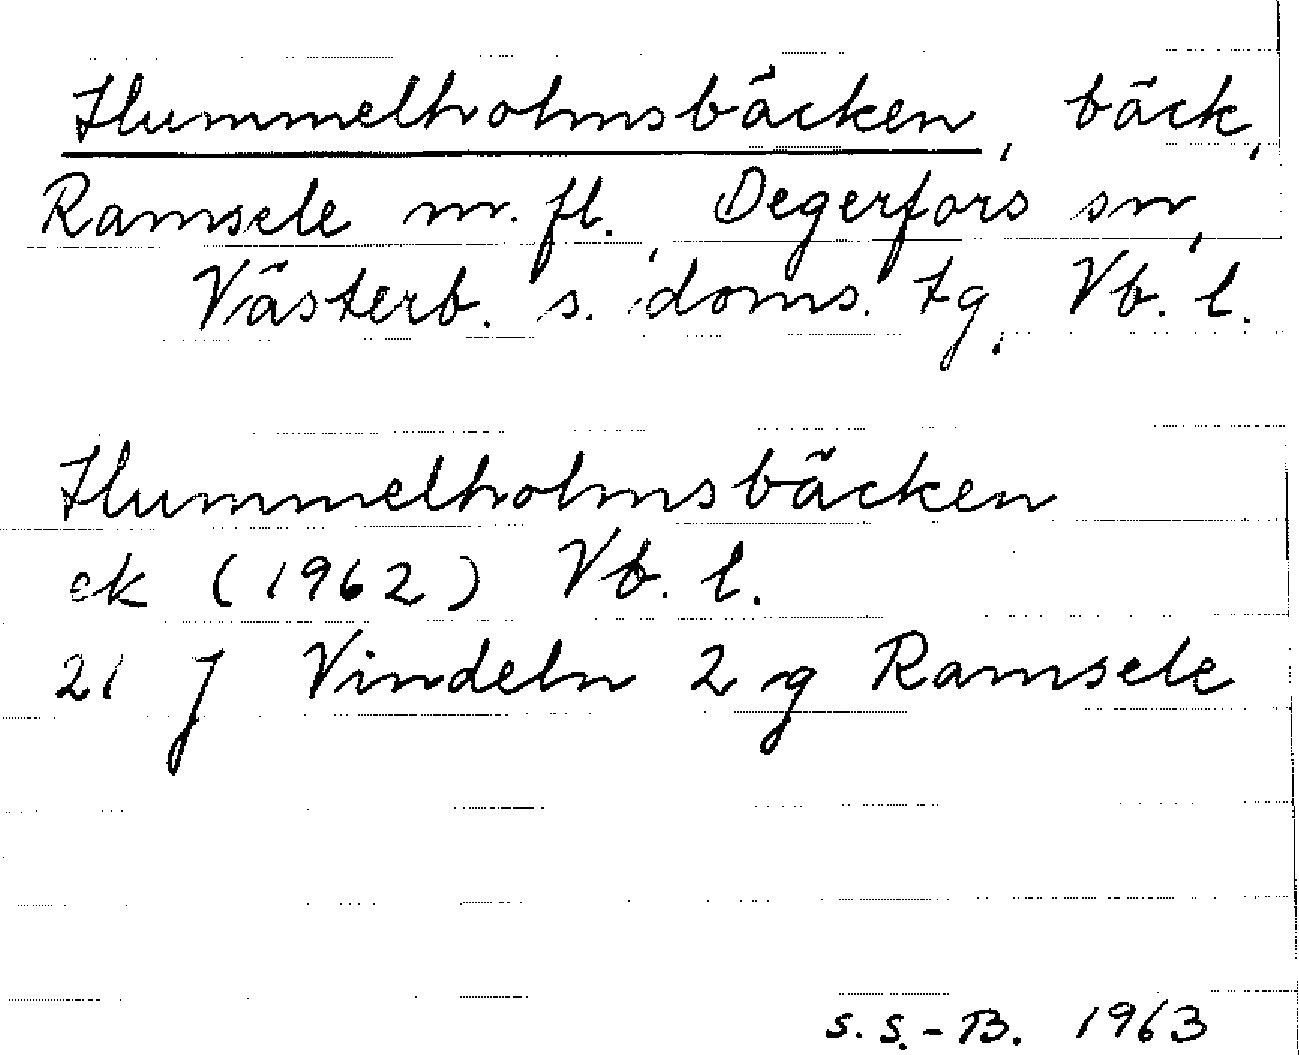 Hummelholmsbäcken, bäck,
Ramsele m. fl., Degerfors sn,
Västerb. s. doms. tg, Vb. l.
Hummelholmsbäcken
ek (1962) Vb. l.
21 J Vindeln 2 g Ramsele
S. S.-B. 1963